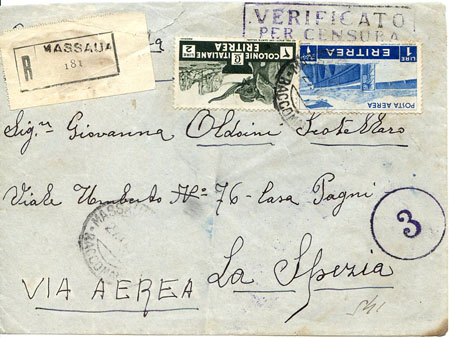 VERIFICATO
PER CENSURA
R MASSAUA
181
LIRE 2
COLONIE ITALIANE
ERITREA
1 LIRE 1
ERITREA
POSTA AEREA
Sig.ra Giovanna Oldoini
Viale Umberto No 76 - Casa Pagni
3
La Spezia
VIA AEREA